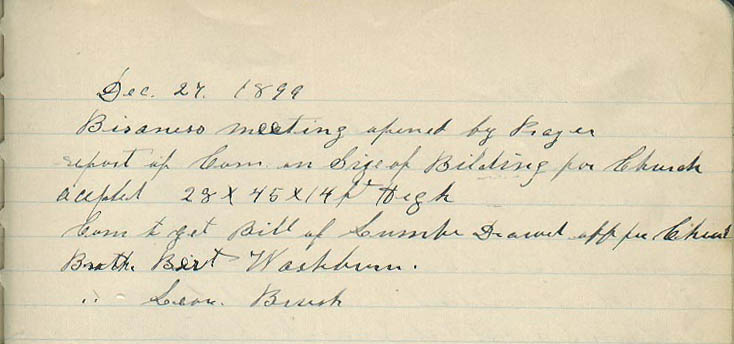 Dec. 27. 1899
Bisaness meeting opened by Prayer
report of Com. on Size of Bilding for Church
acepted 28 X 45 X 14 ft High
Com to get Bill of Lumbe Drawed off for Church
Broth. Bert Washburn.
" Leon. Brush